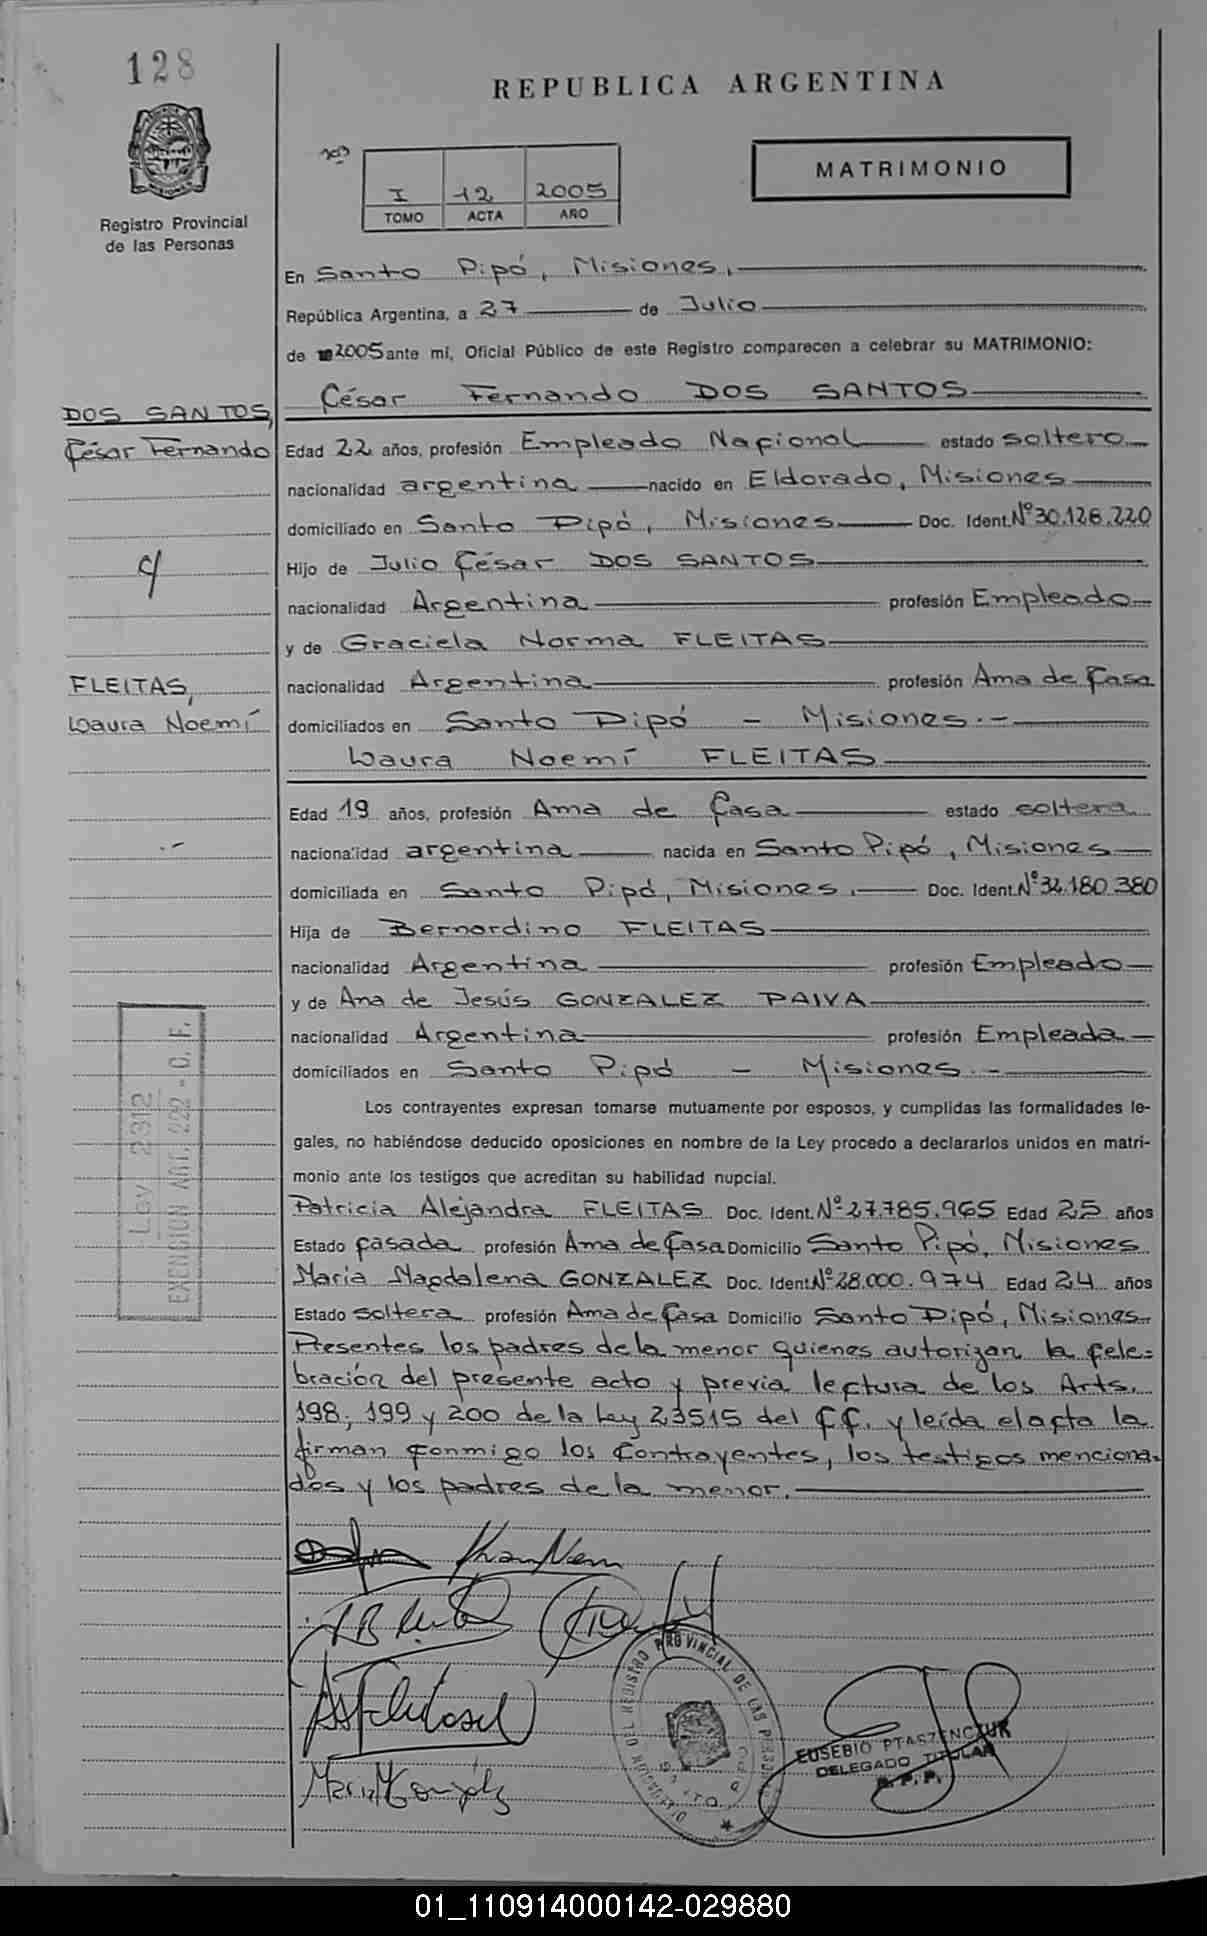 128
REPUBLICA ARGENTINA
MATRIMONIO
I 12 2005
TOMO ACTA AÑO
Registro Provincial
de las Personas
En Santo Pipó, Misiones,
República Argentina, a 27 de Julio
de 2005 ante mí, Oficial Público de este Registro comparecen a celebrar su MATRIMONIO:
César Fernando DOS SANTOS
DOS SANTOS,
César Fernando
Edad 22 años, profesión Empleado Nacional estado soltero
nacionalidad argentina nacido en Eldorado, Misiones
domiciliado en Santo Pipó, Misiones Doc. Ident. Nº 30.126.220
c/
Hijo de Julio César DOS SANTOS
nacionalidad Argentina profesión Empleado
y de Graciela Norma FLEITAS
FLEITAS,
Laura Noemí
nacionalidad Argentina profesión Ama de Casa
domiciliados en Santo Pipó - Misiones.-
Laura Noemí FLEITAS
Edad 19 años, profesión Ama de Casa estado soltera
.-
nacionalidad argentina nacida en Santo Pipó, Misiones
domiciliada en Santo Pipó, Misiones. Doc. Ident. Nº 32.180.380
Hija de Bernardino FLEITAS
nacionalidad Argentina profesión Empleado
y de Ana de Jesús GONZALEZ PAIVA
nacionalidad Argentina profesión Empleada
domiciliados en Santo Pipó - Misiones.-
Ley 2312
EXENCION ART. 222 - C. F.
Los contrayentes expresan tomarse mutuamente por esposos, y cumplidas las formalidades le-
gales, no habiéndose deducido oposiciones en nombre de la Ley procedo a declararlos unidos en matri-
monio ante los testigos que acreditan su habilidad nupcial.
Patricia Alejandra FLEITAS Doc. Ident. Nº 27.785.965 Edad 25 años
Estado casada profesión Ama de Casa Domicilio Santo Pipó, Misiones
María Magdalena GONZALEZ Doc. Ident. Nº 28.000.974 Edad 24 años
Estado soltera profesión Ama de Casa Domicilio Santo Pipó, Misiones
Presentes los padres de la menor quienes autorizan la cele-
bración del presente acto y previa lectura de los Arts.
198, 199 y 200 de la Ley 23515 del CC. y leída el acta la
firman conmigo los contrayentes, los testigos menciona-
dos y los padres de la menor.
REGISTRO PROVINCIAL DE LAS PERSONAS
EUSEBIO PTASZENCZUK
DELEGADO TITULAR
R. P. P.
01_110914000142-029880